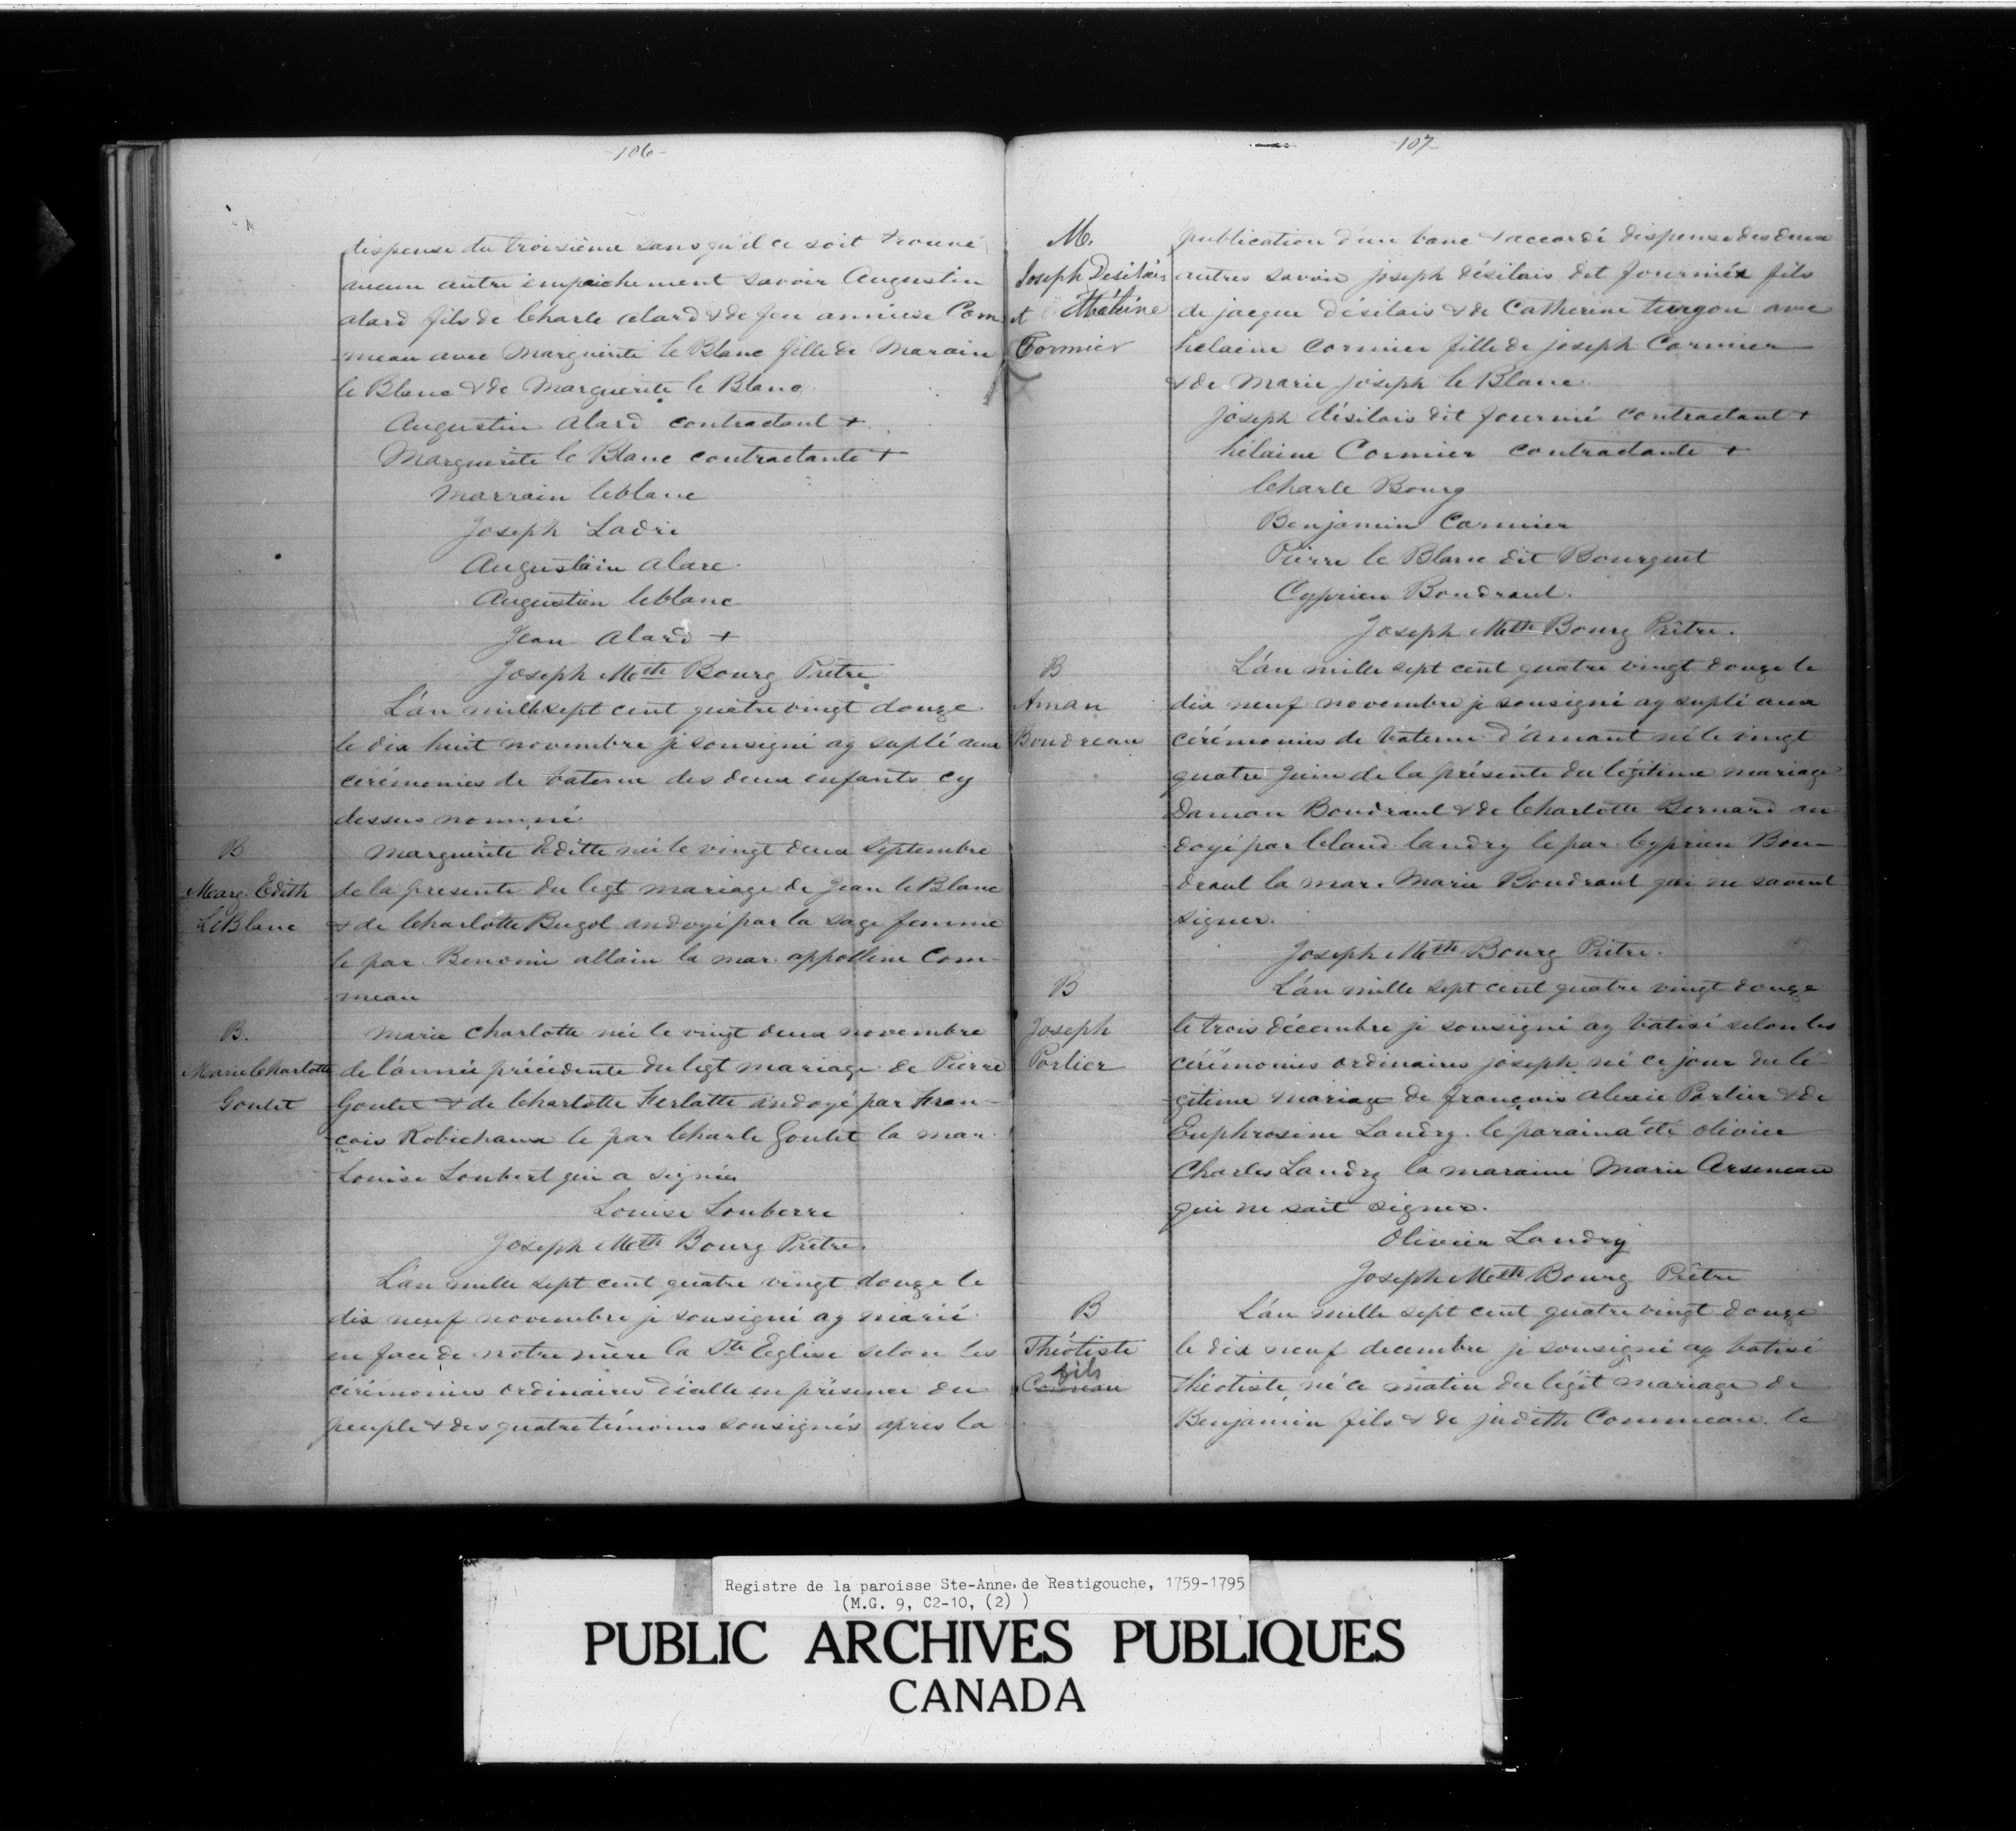 -106-
dispense du troisième sans qu'il ce soit trouvé
aucun autre empaichement savoir Augustin
alard fils de Charle alard & de feu annièse Com
meau avec Marguerite le Blanc fille de Marain
le Blanc & de Marguerite le Blanc.
Augustin alard contractant +
Marguerite le Blanc contractante +
Marrain leblanc
Joseph Ladri
Augustain alare.
Augustin leblanc
Jean Alard +
Joseph Mth Bourg Prêtre
L'an mille sept cent quatre vingt douze
le dix huit novembre je sousigné ay suplé aux
cérémonies de bateme des deux enfants cy
dessus nommé
B
Marg. Edith
LeBlanc
Marguerite Editte née le vingt deux septembre
de la presente du legt mariage de Jean le Blanc
& de Charlotte Bugol andoyé par la sage femme
le par. Benomi allain la mar. appolline Com-
meau
B.
Marie Charlotte
Goulet
Marie Charlotte née le vingt deux novembre
de l'année précédente du legt mariage de Pierre
Goulet & de Charlotte Ferlatte andoyé par Fran-
cois Robichaux le par Charle Goulet la mar.
Louise Loubert qui a signée
Louise Louberre
Joseph Mth Bourg Prêtre.
L'an mille sept cent quatre vingt douze le
dix neuf novembre je sousigné ay marié
en face de notre mère la Ste Eglise selon les
cérémonies ordinaires d'icalle en présence du
peuple & des quatre témoins sousignés après la
107
M.
Joseph Desilais
et Hélène
Cormier
publication d'un banc & accordé dispense des deux
autres savoir joseph désilais dit fournié fils
de jacque désilais & de Catherine turgon avec
helaine Cormier fille de joseph Cormier
& de Marie joseph le Blanc.
joseph désilais dit fournié contractant +
hélaine Cormier contractante +
Charle Bourg
Benjamin Cormier
Pierre le Blanc dit Bourguet
Cyprien Boudraut.
Joseph Mth Bourg Prêtre.
B
Aman
Boudreau
L'an mille sept cent quatre vingt douze le
dix neuf novembre je sousigné ay suplé aux
cérémonies de bateme d'amant né le vingt
quatre juin de la présente du légitime mariage
Daman Boudraut & de Charlotte Bernard an-
doyé par Claud landry le par. Cyprien Bou-
draut la mar. Marie Boudraut qui ne savent
signer.
Joseph Mth Bourg Prêtre.
B
Joseph
Parlier
L'an mille sept cent quatre vingt douze
le trois décembre je sousigné ay batisé selon les
cérémonies ordinaires joseph né ce jour du lé-
gitime mariage de françois alexie Parlier & de
Euphrosine Landry. le parain a été olivier
Charles Landry la maraine Marie Arseneau
qui ne sait signer.
Olivier Landry
Joseph Mth Bourg Prêtre
B
Théotiste
fils
L'an mille sept cent quatre vingt douze
le dix neuf decembre je sousigné ay batisé
théotiste né ce matin du legit mariage de
Benjamin fils & de judith Commeau. le
Registre de la paroisse Ste-Anne de Restigouche, 1759-1795
(M.G. 9, C2-10, (2) )
PUBLIC ARCHIVES PUBLIQUES
CANADA